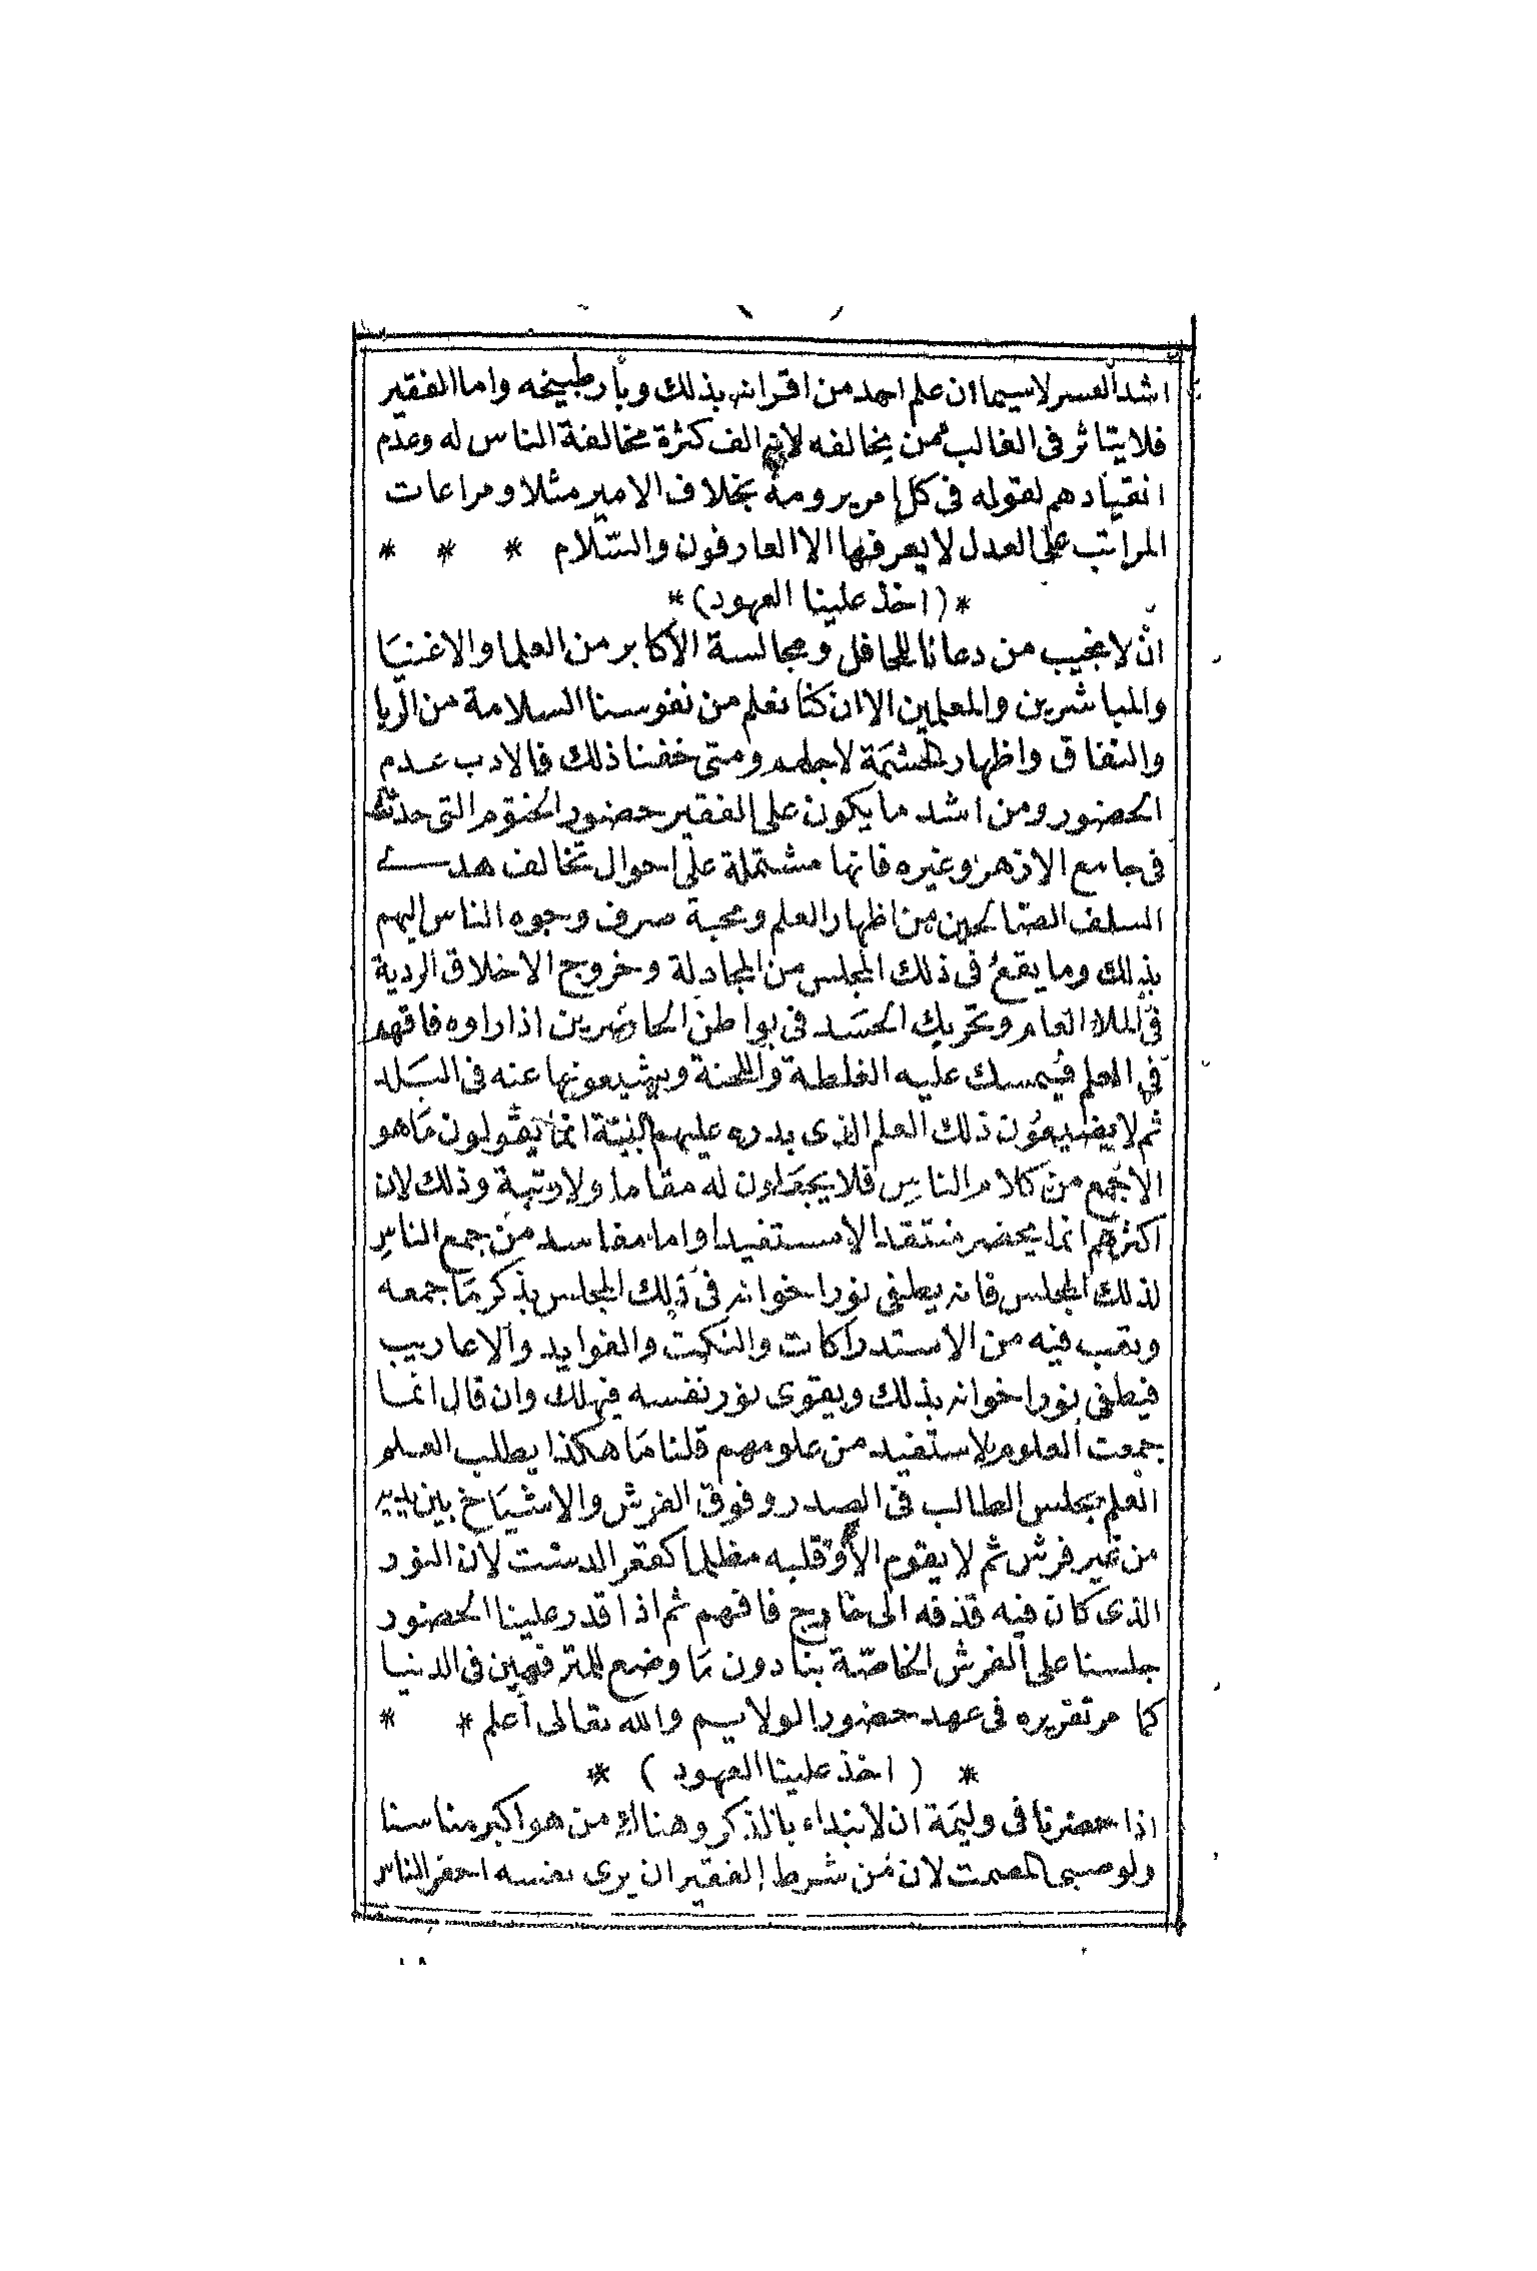 اشد العسر لاسيما ان علم احد من اقرانه بذلك وبأر طبيخه واما الفقير
فلا يتاثر فى الغالب ممن يخالفه لانه الف كثرة مخالفة الناس له وعدم
انقيادهم لقوله فى كل امر يرومه بخلاف الامير مثلا ومراعات
المراتب على العدل لا يعرفها الا العارفون والسّلام * * *
*(اخذ علينا العهود)*
انّ لا نجيب من دعانا للمحافل ومجالسة الأكابر من العلما والاغنيَا
والمباشرين والمعلمين الا ان كنا نعلم من نفوسنا السلامة من الريا
والنفاق واظهار الحشمَة لاجلهم ومتى خفنا ذلك فالادب عدم
الحضور ومن اشد ما يكون على الفقير حضور الختوم التى حدثت
فى جامع الازهر وغيره فانها مشتملة على احوال تخالف هدى
السلف الصالحين من اظهار العلم ومحبة صرف وجوه الناس اليهم
بذلك وما يقع فى ذلك المجلس من المجادلة وخروج الاخلاق الردية
فى الملاء العام وتحريك الحسَد فى بواطن الحاضرين اذا راوه فاقهم
فى العلم فيمسك عليه الغلطة واللحنة ويشيعونها عنه فى البَلد
ثم لا يضيعون ذلك العلم الذى بدره عليهم البتة انما يقولون مَا هو
الا جُمع من كلام الناس فلا يجعَلون له مقاما ولا رتبة وذلك لان
اكثرهم انما يحضر منتقدا لا مستفيدا واما مفاسد من جمع الناس
لذلك المجلس فانه يطفى نور اخوانه فى ذلك المجلس بذكر مَا جمعه
وتعب فيه من الاستدراكات والنكت والفوايد والاعاريب
فيطفى نور اخوانه بذلك ويقوى نور نفسه فيهلك وان قال انما
جمعت العلوم لاستفيد من علومهم قلنا مَا هكذا يطلب العلم
العلم يجلس الطالب فى الصدر وفوق الفرش والاشيَاخ بين يديه
من غير فرش ثم لا يقوم الا وقلبه مظلما كقعر الدست لان النور
الذى كان فيه قذفه الى خارج فافهم ثم اذا قدر علينا الحضور
جلسنا على الفرش الخاصّة بنا دون مَا وضع للمترفهين فى الدنيا
كما مر تقريره فى عهد حضور الولايم والله تعالى أعلم * *
* ( اخذ علينا العهود ) *
اذا حضرنا فى وليمَة ان لا نبداء بالذكر وهناك من هو اكبر منا سنا
ولو صبيا لصمت لان من شرط الفقير ان يرى نفسه احقر الناس